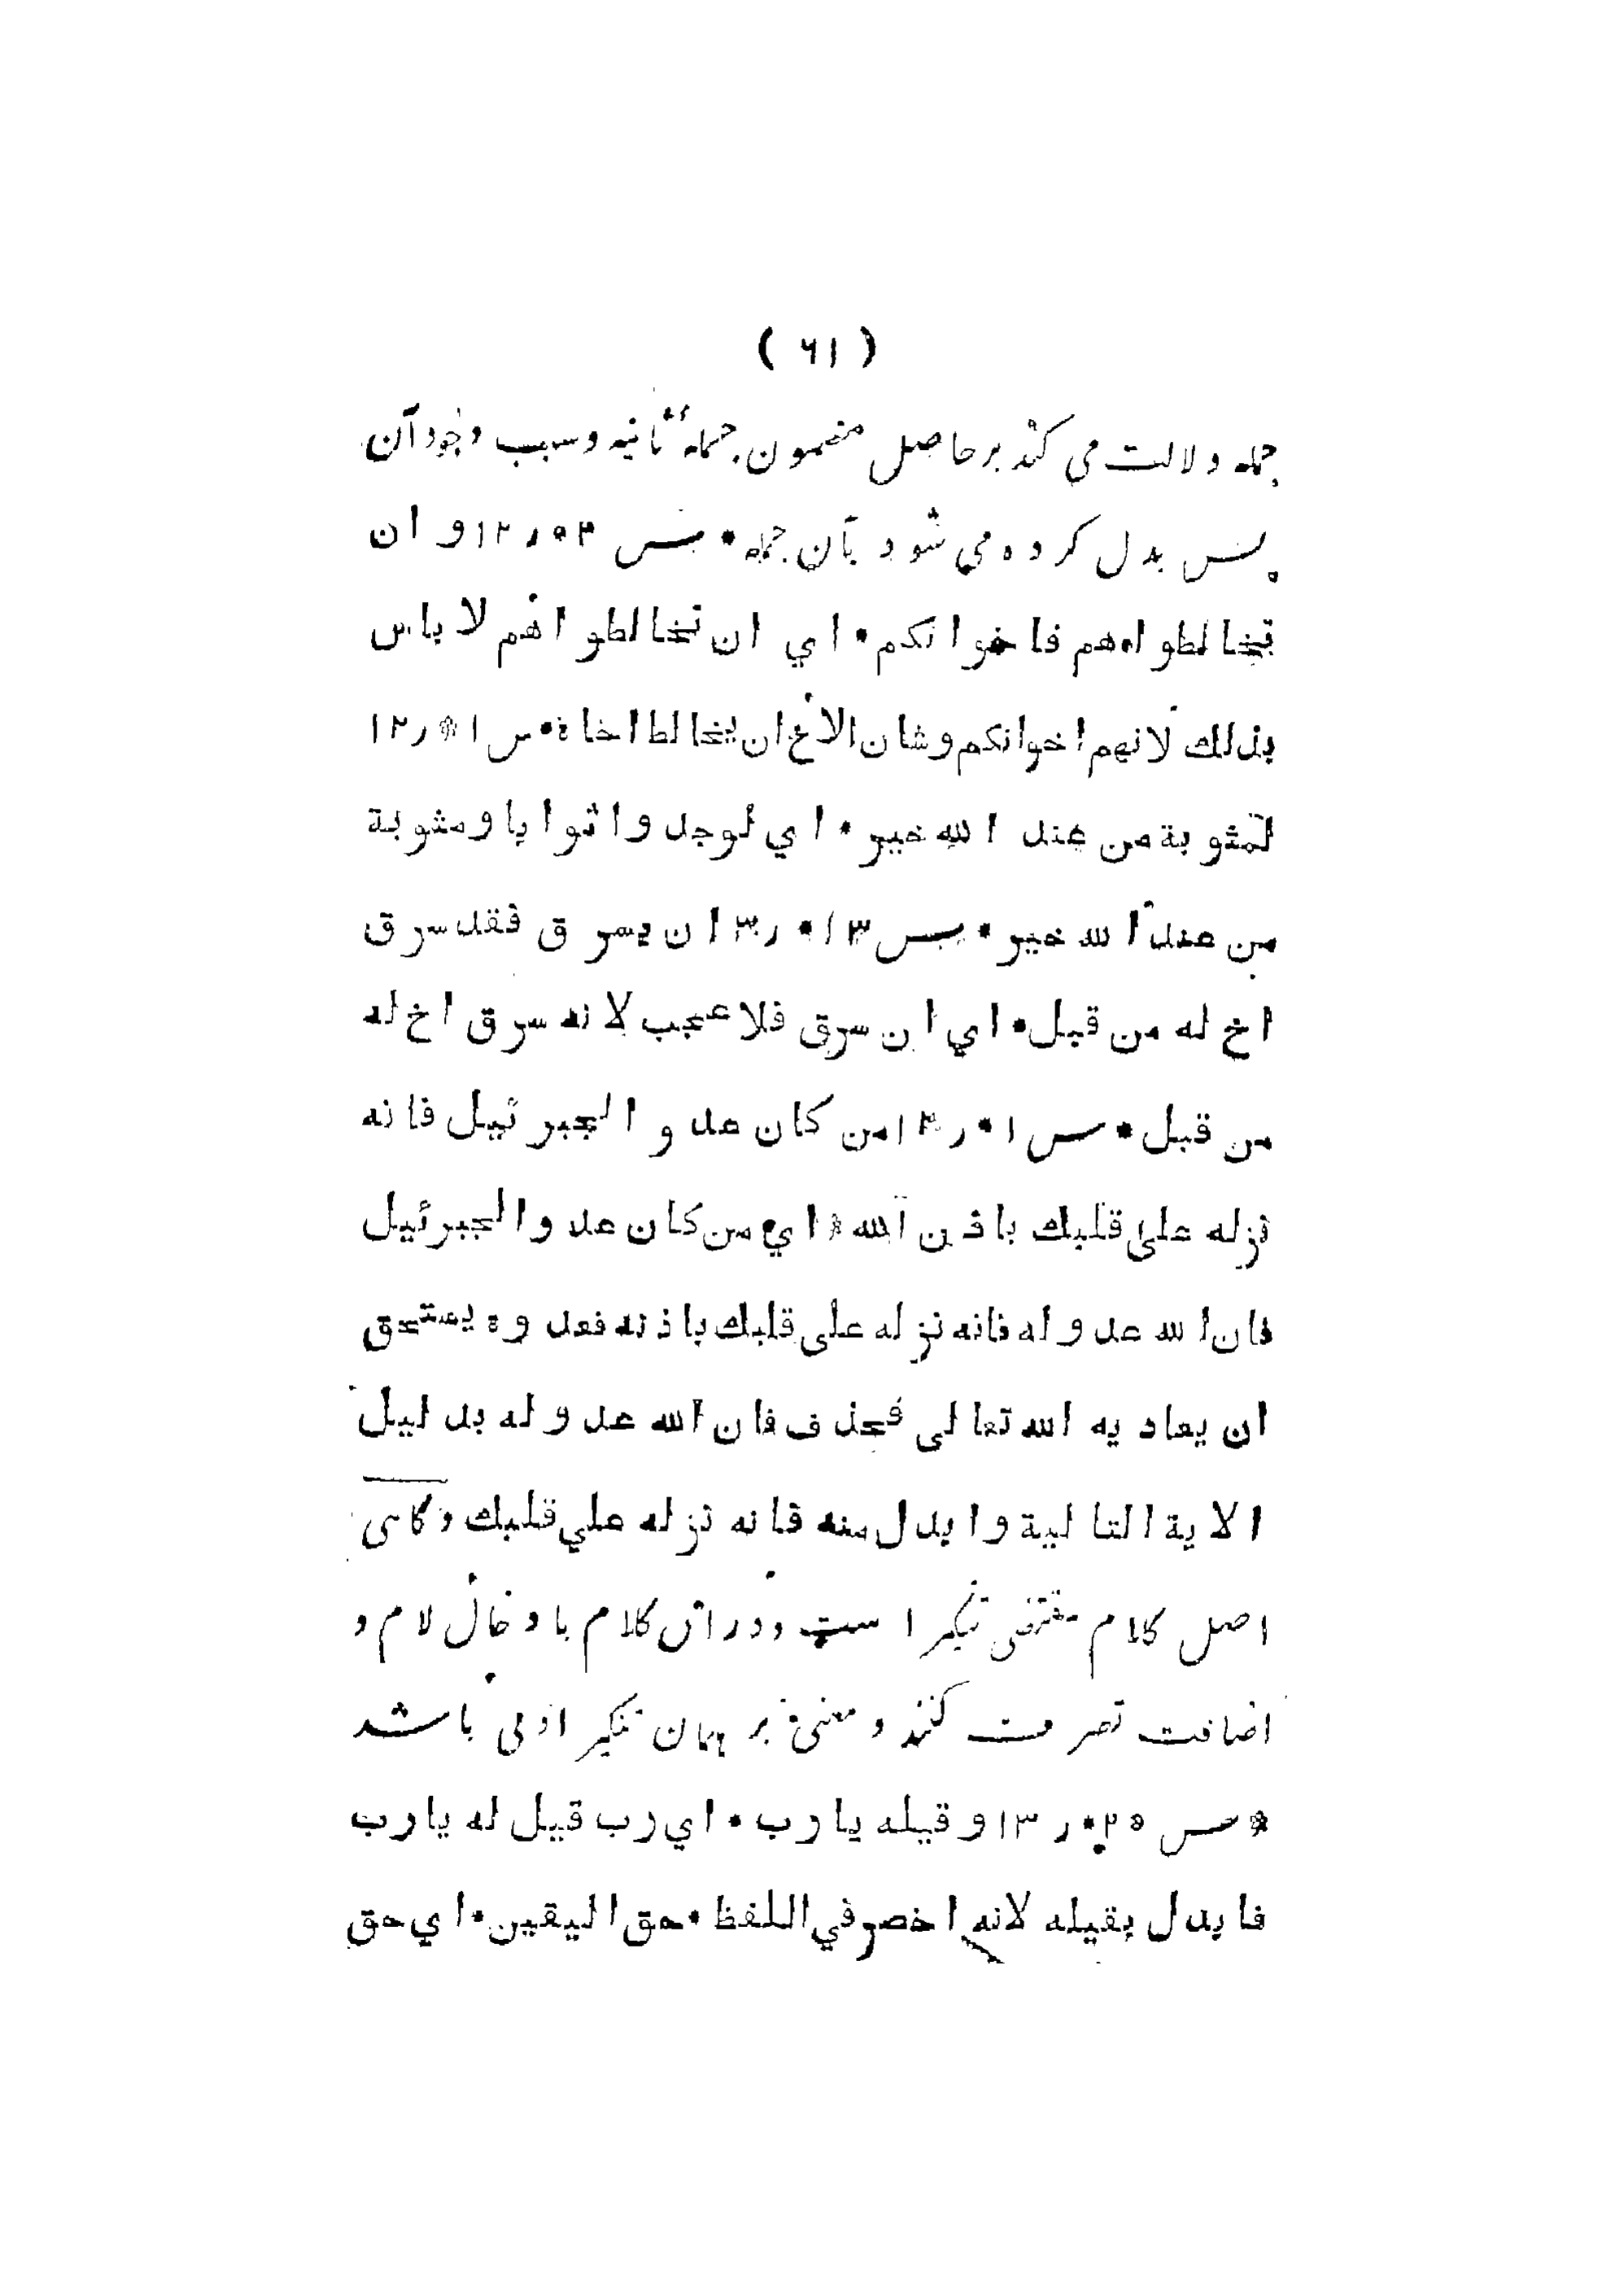 ( ٦١ )
جمله دلالت می کند بر حاصل مضمون جملهٔ ثانیه و سبب وجود آن
پس بدل کرده می شود بآن جمله * س ٢ ٥ ر ١٢ و ان
تخالطوهم فاخوانكم * اي ان تخالطوا هم لا باس
بذلك لانهم اخوانكم وشان الاخ ان يخالط اخاه * س ١ * ر ١٢
لمثوبة من عند الله خير * اي لوجدوا ثوابا ومثوبة
من عند الله خير * س ١٣ * ر ٣ ان يسرق فقد سرق
اخ له من قبل * اي ان سرق فلا عجب لانه سرق اخ له
من قبل * س ١ * ر ١٢ من كان عدوا لجبرئيل فانه
نزله على قلبك باذن الله * اي من كان عدوا لجبرئيل
فان الله عدو له فانه نزله على قلبك باذنه فعدوه يستحق
ان يعاديه الله تعالى فحذف فان الله عدو له بدليل
الاية التالية وابدل منه فانه نزله علي قلبك و گاهی
اصل کلام مقتضی تنکیر است و در ان کلام بادخال لام و
اضافت تصرف کنند و معنی بر همان تنکیر اولی باشد
* س ٢٥ * ر ١٣ و قيله يارب * اي رب قيل له يارب
فابدل بقيله لانه اخصر في اللفظ * حق اليقين * اي حق